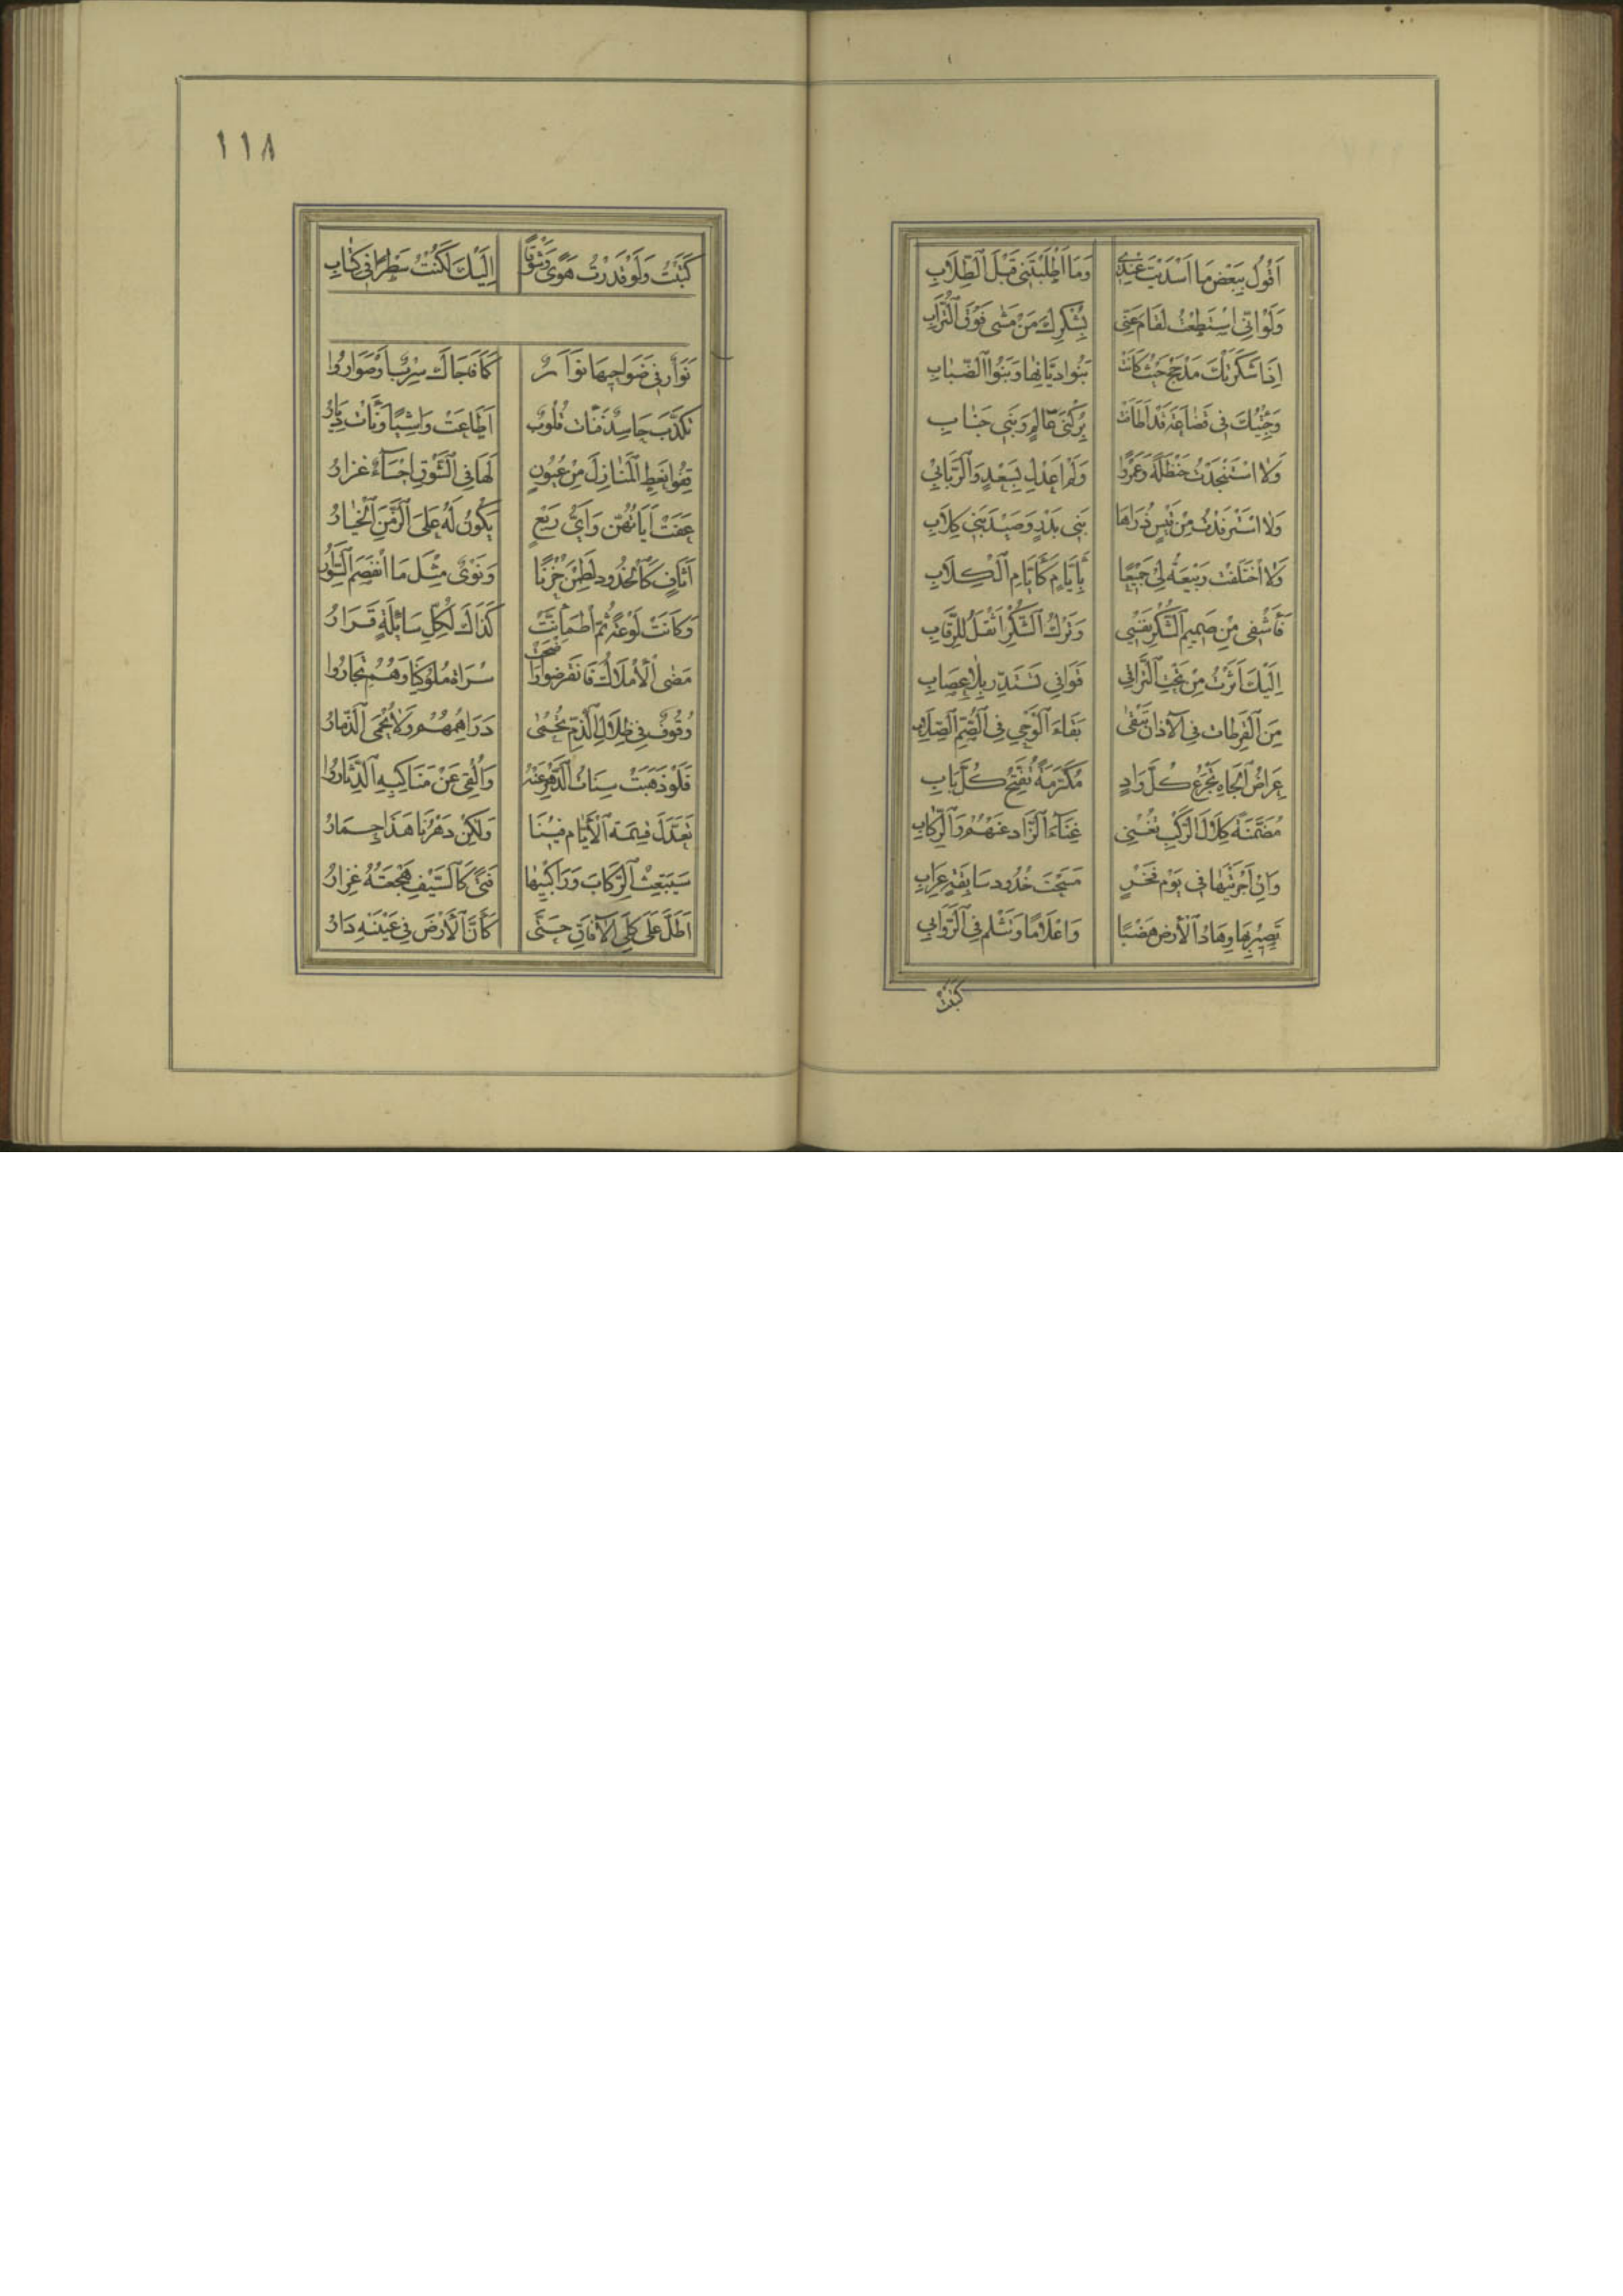 اَقُولُ بِبَعْضِ مَا اَسْدَيْتَ عِنْدِي وَمَا اَطْلَبْتَنِي قَبْلَ الطِّلَابِ
وَلَوْ اَنِّي اسْتَطَعْتُ لَقَامَ عَنِّي بِشُكْرِكَ مَنْ مَشَى فَوْقَ التُّرَابِ
اِذَا شَكَرَتْكَ مَذْحِجُ حَيْثُ كَانَتْ بَنُو دَيَّانِهَا وَبَنُوا الضِّبَابِ
وَجِئْتُكَ فِي قُضَاعَةَ قَدْ اَطَافَتْ بِرُكْنَيْ عَالِمٍ وَبَنِي جَنَابِ
وَلَا اسْتَنْجَدْتُ حَنْظَلَةً وَعَمْرًوا وَلَمْ اَعْدِلْ بِسَعْدٍ وَالرَّبَابِ
وَلَا اسْتَرْفَدْتُ مِنْ قَيْسٍ ذُرَاهَا بَنِي بَدْرٍ وَصَيْدَ بَنِي كِلَابِ
وَلَا اخْتَلَفَتْ رَبِيعَةُ لِي جَمِيعًا بِاَيَّامٍ كَاَيَّامِ الْكِلَابِ
فَاَشْفِي مِنْ صَمِيمِ الشُّكْرِ نَفْسِي وَتَرْكُ الشُّكْرِ اَثْقَلُ لِلرِّقَابِ
اِلَيْكَ اَثَرْتُ مِنْ تَحْتِ التَّرَاقِي قَوَافِيَ تَسْتَدِرُّ بِلَا عِصَابِ
مِنَ الْقِرَطَاتِ فِي الْآذَانِ تَبْقَى بَقَاءَ الْوَحْيِ فِي الصُّمِّ الصِّلَابِ
عِرَاضُ الْجَاهِ تَجْزَعُ كُلَّ وَادٍ مُكَرَّمَةً تُفَتِّحُ كُلَّ بَابِ
مُضَمَّنَةً كِلَالَ الرَّكْبِ تُغْنِي غِنَاءَ الزَّادِ عَنْهُمْ وَالرِّكَابِ
وَاِنْ اَجْرَيْتَهَا فِي يَوْمِ فَخْرٍ مَسَحْتَ خُدُودَ سَابِقَةٍ عِرَابِ
تَصِيرُ بِهَا وِهَادُ الْاَرْضِ هَضْبًا وَاَعْلَامًا وَتَثْلِمُ فِي الرَّوَابِي
كَتَبْتُ
١١٨
كَتَبْتُ وَلَوْ قَدَرْتُ هَوًى وَشَوْقًا اِلَيْكَ لَكُنْتُ سَطْرًا فِي كِتَابِ
نَوَارٌ فِي صَوَاحِبِهَا نَوَارُ كَمَا فَجَاكَ سِرْبٌ اَوْ صُوَارُوا
تَكَذَّبَ حَاسِدٌ فَنَاتْ قُلُوبٌ اَطَاعَتْ وَاشِيًا وَنَأَتْ دِيَارُ
قِفُوا نُعْطِ الْمَنَازِلَ مِنْ عُيُونٍ لَهَا فِي الشَّوْقِ اِحْسَاءٌ غِزَارُ
عَفَتْ اٰيَاتُهُنَّ وَاَيُّ رَبْعٍ يَكُونُ لَهُ عَلَى الزَّمَنِ الْخِيَارُ
اَثَافٍ كَالْخُدُودِ لُطِمْنَ حُزْنًا وَنُؤْيٌ مِثْلَ مَا انْفَصَمَ السِّوَارُ
وَكَانَتْ لَوْعَةٌ ثُمَّ اطْمَأَنَّتْ كَذَاكَ لِكُلِّ سَائِلَةٍ قَرَارُ
مَضَى الْاَمْلَاكُ فَانْقَرَضُوا وَاَضْحَتْ سَرَاةُ مُلُوكِنَا وَهُمْ تِجَارُوا
وُقُوفٌ فِي ظِلَالِ الذَّمِّ تُحْمَى دَرَاهِمُهُمْ وَلَا يُحْمَى الذِّمَارُ
فَلَوْ ذَهَبَتْ سِنَاتُ الدَّهْرِ عَنْهُ وَاُلْقِيَ عَنْ مَنَاكِبِهِ الدِّثَارُوا
تَعَدَّلَ قِيمَةُ الْاَيَّامِ فِينَا وَلَكِنْ دَهْرُنَا هَذَا حِمَارُ
سَيَبْعَثُ الرِّكَابَ وَرَاكِبِيهَا فَتًى كَالسَّيْفِ هَجْعَتُهُ غِرَارُ
اَطَلَّ عَلَى كُلَى الْآفَاقِ حَتَّى كَأَنَّ الْاَرْضَ فِي عَيْنَيْهِ دَارُ